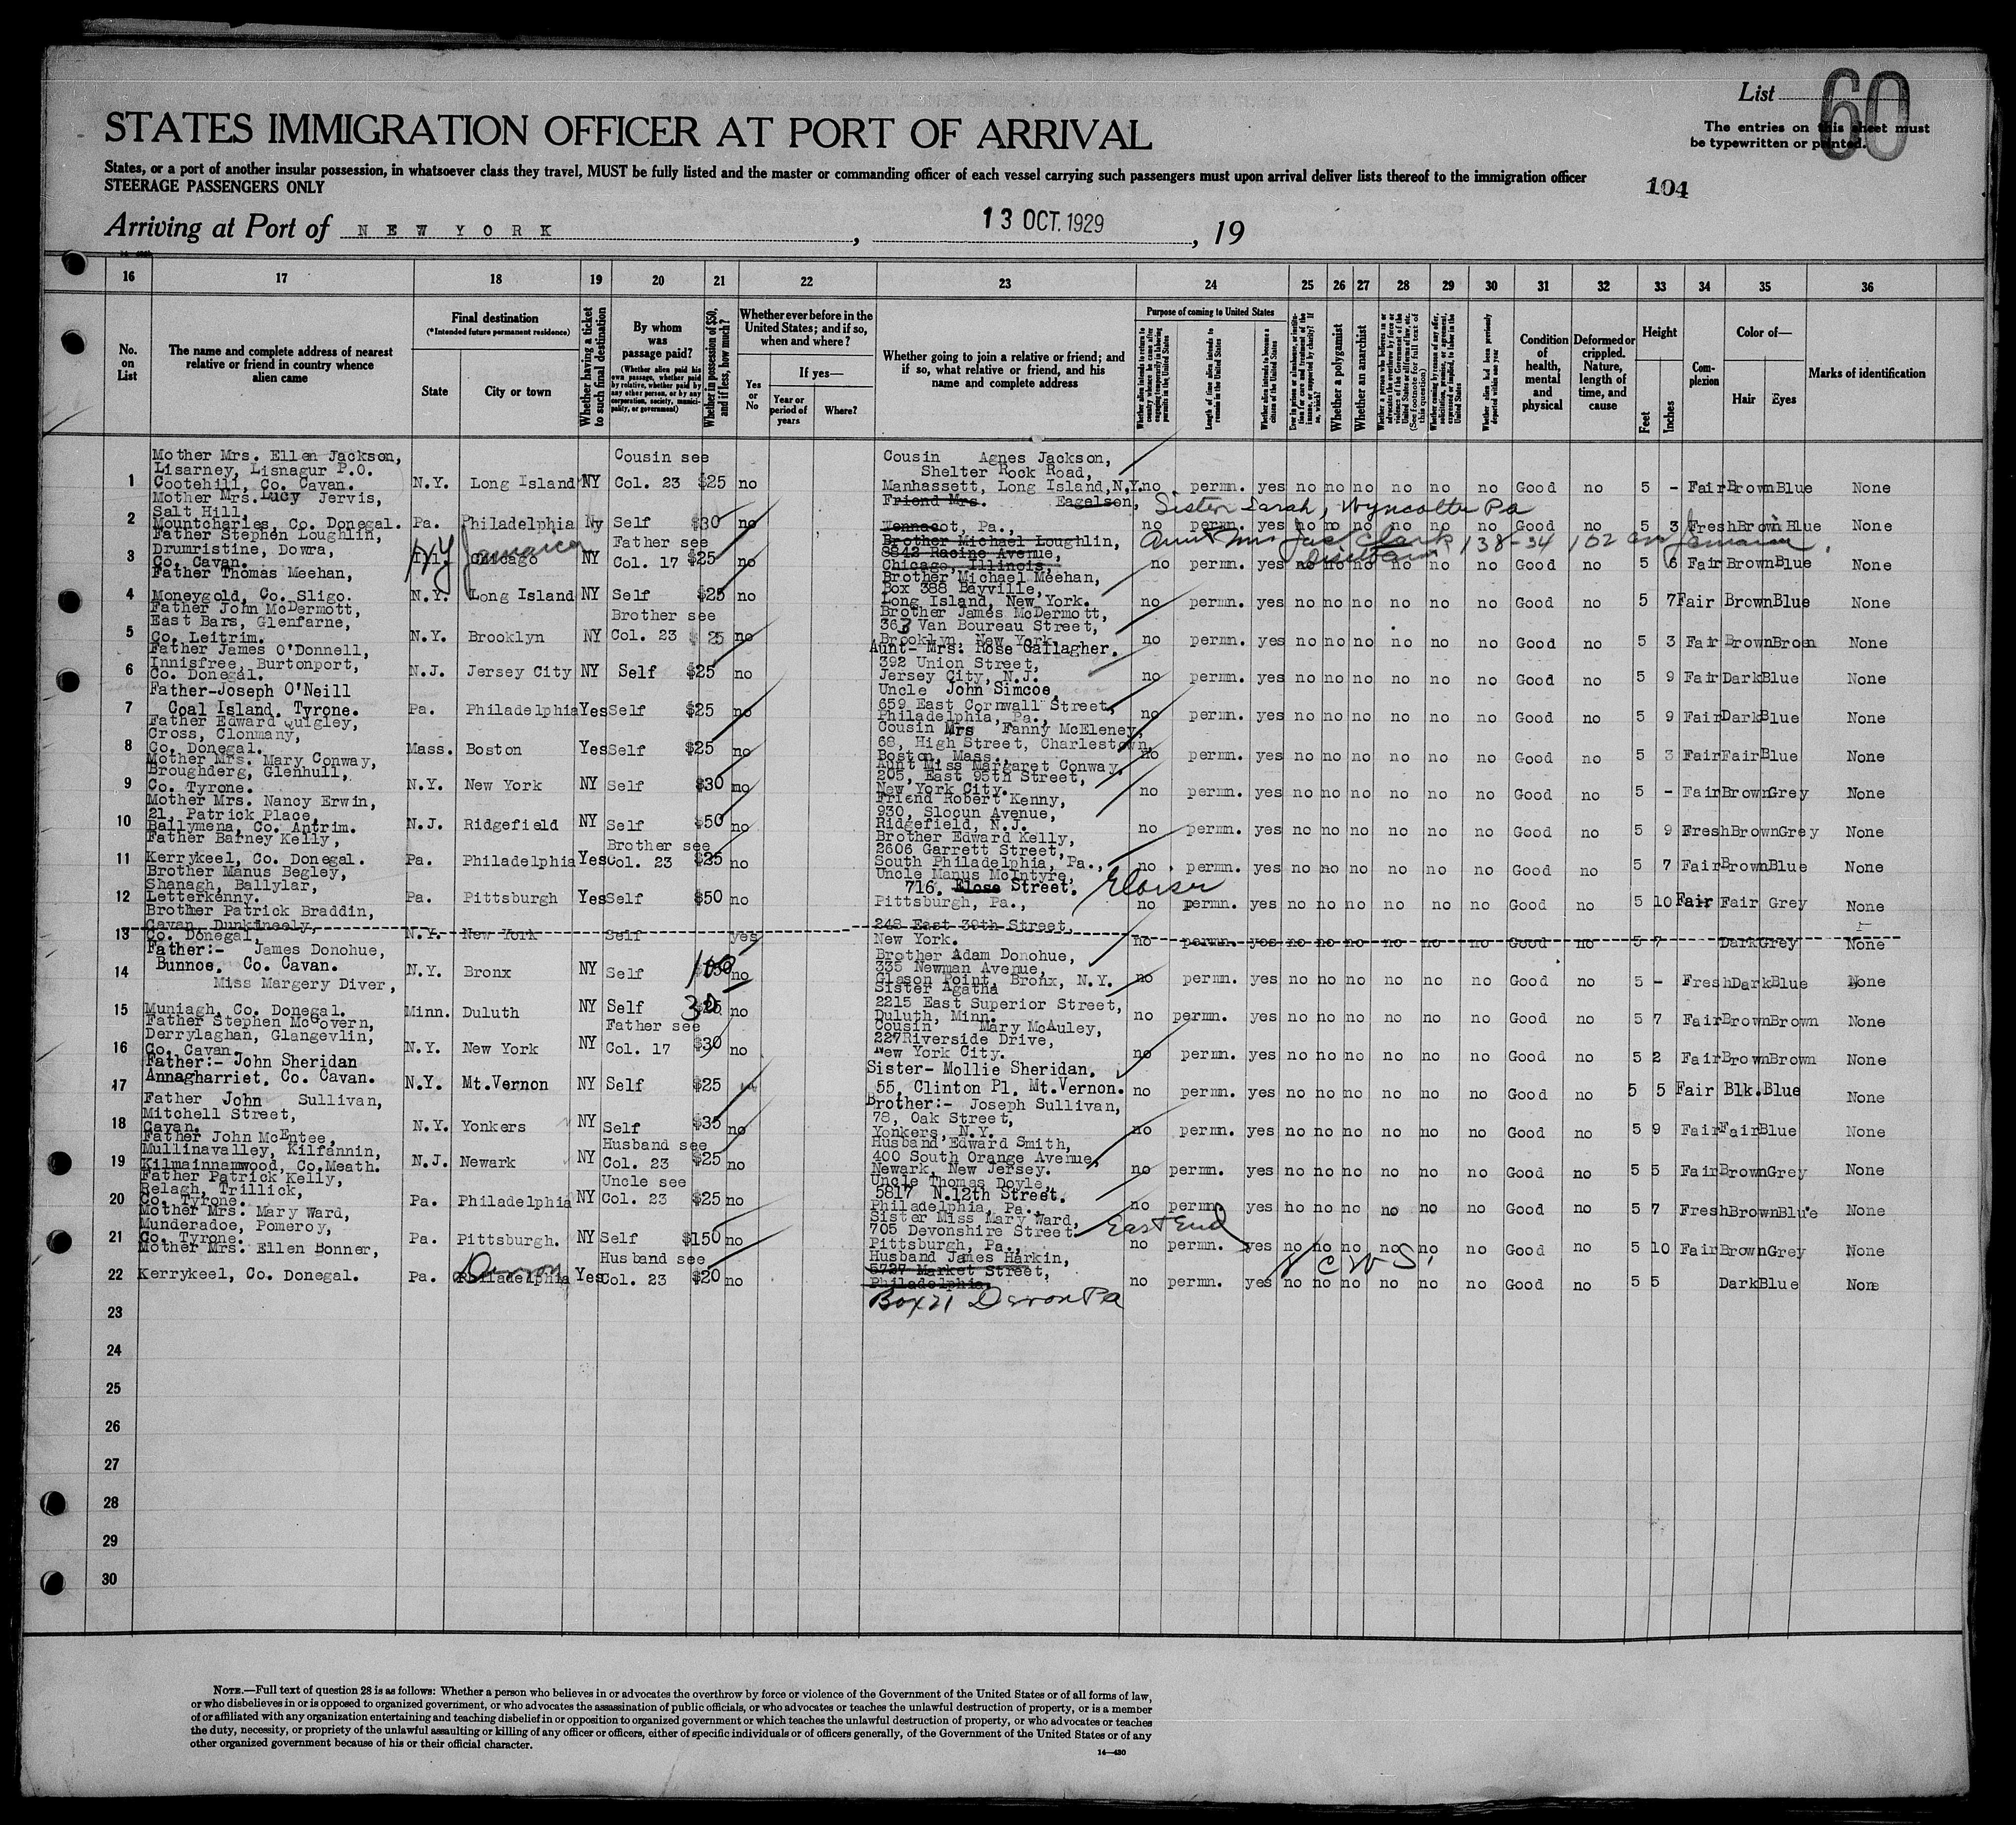 List
60
STATES IMMIGRATION OFFICER AT PORT OF ARRIVAL
The entries on this sheet must
be typewritten or printed.
States, or a port of another insular possession, in whatsoever class they travel, MUST be fully listed and the master or commanding officer of each vessel carrying such passengers must upon arrival deliver lists thereof to the immigration officer
STEERAGE PASSENGERS ONLY
104
Arriving at Port of NEW YORK , 13 OCT. 1929 , 19
16 17 18 19 20 21 22 23 24 25 26 27 28 29 30 31 32 33 34 35 36
No. on List
The name and complete address of nearest relative or friend in country whence alien came
Final destination
(*Intended future permanent residence)
State
City or town
Whether having a ticket to such final destination
By whom was passage paid?
(Whether alien paid his own passage, whether paid by relative, whether paid by any other person, or by any corporation, society, municipality, or government)
Whether in possession of $50, and if less, how much?
Whether ever before in the United States; and if so, when and where?
Yes or No
If yes—
Year or period of years
Where?
Whether going to join a relative or friend; and if so, what relative or friend, and his name and complete address
Purpose of coming to United States
Length of time alien intends to remain in the United States
Whether alien intends to become a citizen of the United States
Whether a polygamist
Whether an anarchist
Whether alien had been previously deported within one year
Condition of health, mental and physical
Deformed or crippled. Nature, length of time, and cause
Height
Feet
Inches
Complexion
Color of—
Hair
Eyes
Marks of identification
1 Mother Mrs. Ellen Jackson, Lisarney, Lisnagur P.O. Cootehill, Co. Cavan. N.Y. Long Island NY Cousin see Col. 23 $25 no Cousin Agnes Jackson, Shelter Rock Road, Manhassett, Long Island, N.Y. no permn. yes no no no no no no Good no 5 - Fair Brown Blue None
2 Mother Mrs. Lucy Jervis, Salt Hill, Mountcharles, Co. Donegal. Pa. Philadelphia Ny Self $30 no Friend Mrs. Eagelson, Pa., Sister Sarah, Wyncotte Pa no permn. yes no no no no no no Good no 5 3 Fresh Brown Blue None
3 Father Stephen Loughlin, Drumristine, Dowra, Co. Cavan. Ill. NY Chicago Jamaica NY Father see Col. 17 $25 no Brother Michael Loughlin, 8842 Racine Avenue, Chicago, Illinois. Aunt Mrs Jas Clark 138-34 102 av Jamaica no permn. yes no no no no no no Good no 5 6 Fair Brown Blue None
4 Father Thomas Meehan, Moneygold, Co. Sligo. N.Y. Long Island NY Self $25 no Brother Michael Meehan, Box 388 Bayville, Long Island, New York. no permn. yes no no no no no no Good no 5 7 Fair Brown Blue None
5 Father John McDermott, East Bars, Glenfarne, Co. Leitrim. N.Y. Brooklyn NY Brother see Col. 23 $ 25 no Brother James McDermott, 363 Van Boureau Street, Brooklyn, New York. no permn. yes no no no no no no Good no 5 3 Fair Brown Broen None
6 Father James O'Donnell, Innisfree, Burtonport, Co. Donegal. N.J. Jersey City NY Self $25 no Aunt- Mrs. Rose Gallagher. 392 Union Street, Jersey City, N.J. no permn. yes no no no no no no Good no 5 9 Fair Dark Blue None
7 Father-Joseph O'Neill Coal Island, Tyrone. Pa. Philadelphia Yes Self $25 no Uncle John Simcoe, 659 East Cornwall Street, Philadelphia, Pa., no permn. yes no no no no no no Good no 5 9 Fair Dark Blue None
8 Father Edward Quigley, Cross, Clonmany, Co. Donegal. Mass. Boston Yes Self $25 no Cousin Mrs Fanny McEleney, 68, High Street, Charlestown, Boston, Mass., no permn. yes no no no no no no Good no 5 3 Fair Fair Blue None
9 Mother Mrs. Mary Conway, Broughderg, Glenhull, Co. Tyrone. N.Y. New York NY Self $30 no Aunt Miss Margaret Conway, 205, East 95th Street, New York City. no permn. yes no no no no no no Good no 5 - Fair Brown Grey None
10 Mother Mrs. Nancy Erwin, 21, Patrick Place, Ballymena, Co. Antrim. N.J. Ridgefield NY Self $50 no Friend Robert Kenny, 930, Slocun Avenue, Ridgefield, N.J. no permn. yes no no no no no no Good no 5 9 Fresh Brown Grey None
11 Father Barney Kelly, Kerrykeel, Co. Donegal. Pa. Philadelphia Yes Brother see Col. 23 $25 no Brother Edward Kelly, 2606 Garrett Street, South Philadelphia, Pa., no permn. yes no no no no no no Good no 5 7 Fair Brown Blue None
12 Brother Manus Begley, Shanagh, Ballylar, Letterkenny. Pa. Pittsburgh Yes Self $50 no Uncle Manus McIntyre, 716, Elose Street. Eloise Pittsburgh, Pa., no permn. yes no no no no no no Good no 5 10 Fair Fair Grey None
13 Brother Patrick Braddin, Cavan, Dunkineely, Co. Donegal. N.Y. New York Self yes 248 East 39th Street, New York. no permn. yes no no no no no no Good no 5 7 Dark Grey None
14 Father:- James Donohue, Bunnoe, Co. Cavan. N.Y. Bronx NY Self 100 no Brother Adam Donohue, 335 Newman Avenue, Glason Point, Bronx, N.Y. no permn. yes no no no no no no Good no 5 - Fresh Dark Blue None
15 Miss Margery Diver, Muniagh, Co. Donegal. Minn. Duluth NY Self $25 30 no Sister Agatha 2215 East Superior Street, Duluth, Minn. no permn. yes no no no no no no Good no 5 7 Fair Brown Brown None
16 Father Stephen McGovern, Derrylaghan, Glangevlin, Co. Cavan. N.Y. New York NY Father see Col. 17 $30 no Cousin Mary McAuley, 227 Riverside Drive, New York City. no permn. yes no no no no no no Good no 5 2 Fair Brown Brown None
17 Father:- John Sheridan Annagharriet, Co. Cavan. N.Y. Mt. Vernon NY Self $25 Sister- Mollie Sheridan. 55, Clinton Pl, Mt. Vernon. no permn. yes no no no no no no Good no 5 5 Fair Blk. Blue None
18 Father John Sullivan, Mitchell Street, Cavan. N.Y. Yonkers NY Self $35 no Brother:- Joseph Sullivan, 78, Oak Street, Yonkers, N.Y. no permn. yes no no no no no no Good no 5 9 Fair Fair Blue None
19 Father John McEntee, Mullinavalley, Kilfannin, Kilmainnamwood, Co. Meath. N.J. Newark NY Husband see Col. 23 $25 no Husband Edward Smith, 400 South Orange Avenue, Newark, New Jersey. no permn. yes no no no no no no Good no 5 5 Fair Brown Grey None
20 Father Patrick Kelly, Relagh, Trillick, Co. Tyrone. Pa. Philadelphia NY Uncle see Col. 23 $25 no Uncle Thomas Doyle, 5817 N. 12th Street. Philadelphia, Pa., no permn. yes no no no no no no Good no 5 7 Fresh Brown Blue None
21 Mother Mrs. Mary Ward, Munderadoe, Pomeroy, Co. Tyrone. Pa. Pittsburgh. NY Self $150 no Sister Miss Mary Ward, 705 Devonshire Street East End Pittsburgh, Pa., no permn. yes no no no no no no Good no 5 10 Fair Brown Grey None
22 Mother Mrs. Ellen Bonner, Kerrykeel, Co. Donegal. Pa. Philadelphia Devon Yes Husband see Col. 23 $20 no Husband James Harkin, 5727 Market Street, Philadelphia. Box 21 Devon Pa no permn. yes no no no no no no Good no 5 5 Dark Blue None
23
24
25
26
27
28
29
30
NOTE.—Full text of question 28 is as follows: Whether a person who believes in or advocates the overthrow by force or violence of the Government of the United States or of all forms of law,
or who disbelieves in or is opposed to organized government, or who advocates the assassination of public officials, or who advocates or teaches the unlawful destruction of property, or is a member
of or affiliated with any organization entertaining and teaching disbelief in or opposition to organized government or which teaches the unlawful destruction of property, or who advocates or teaches
the duty, necessity, or propriety of the unlawful assaulting or killing of any officer or officers, either of specific individuals or of officers generally, of the Government of the United States or of any
other organized government because of his or their official character.
14—430